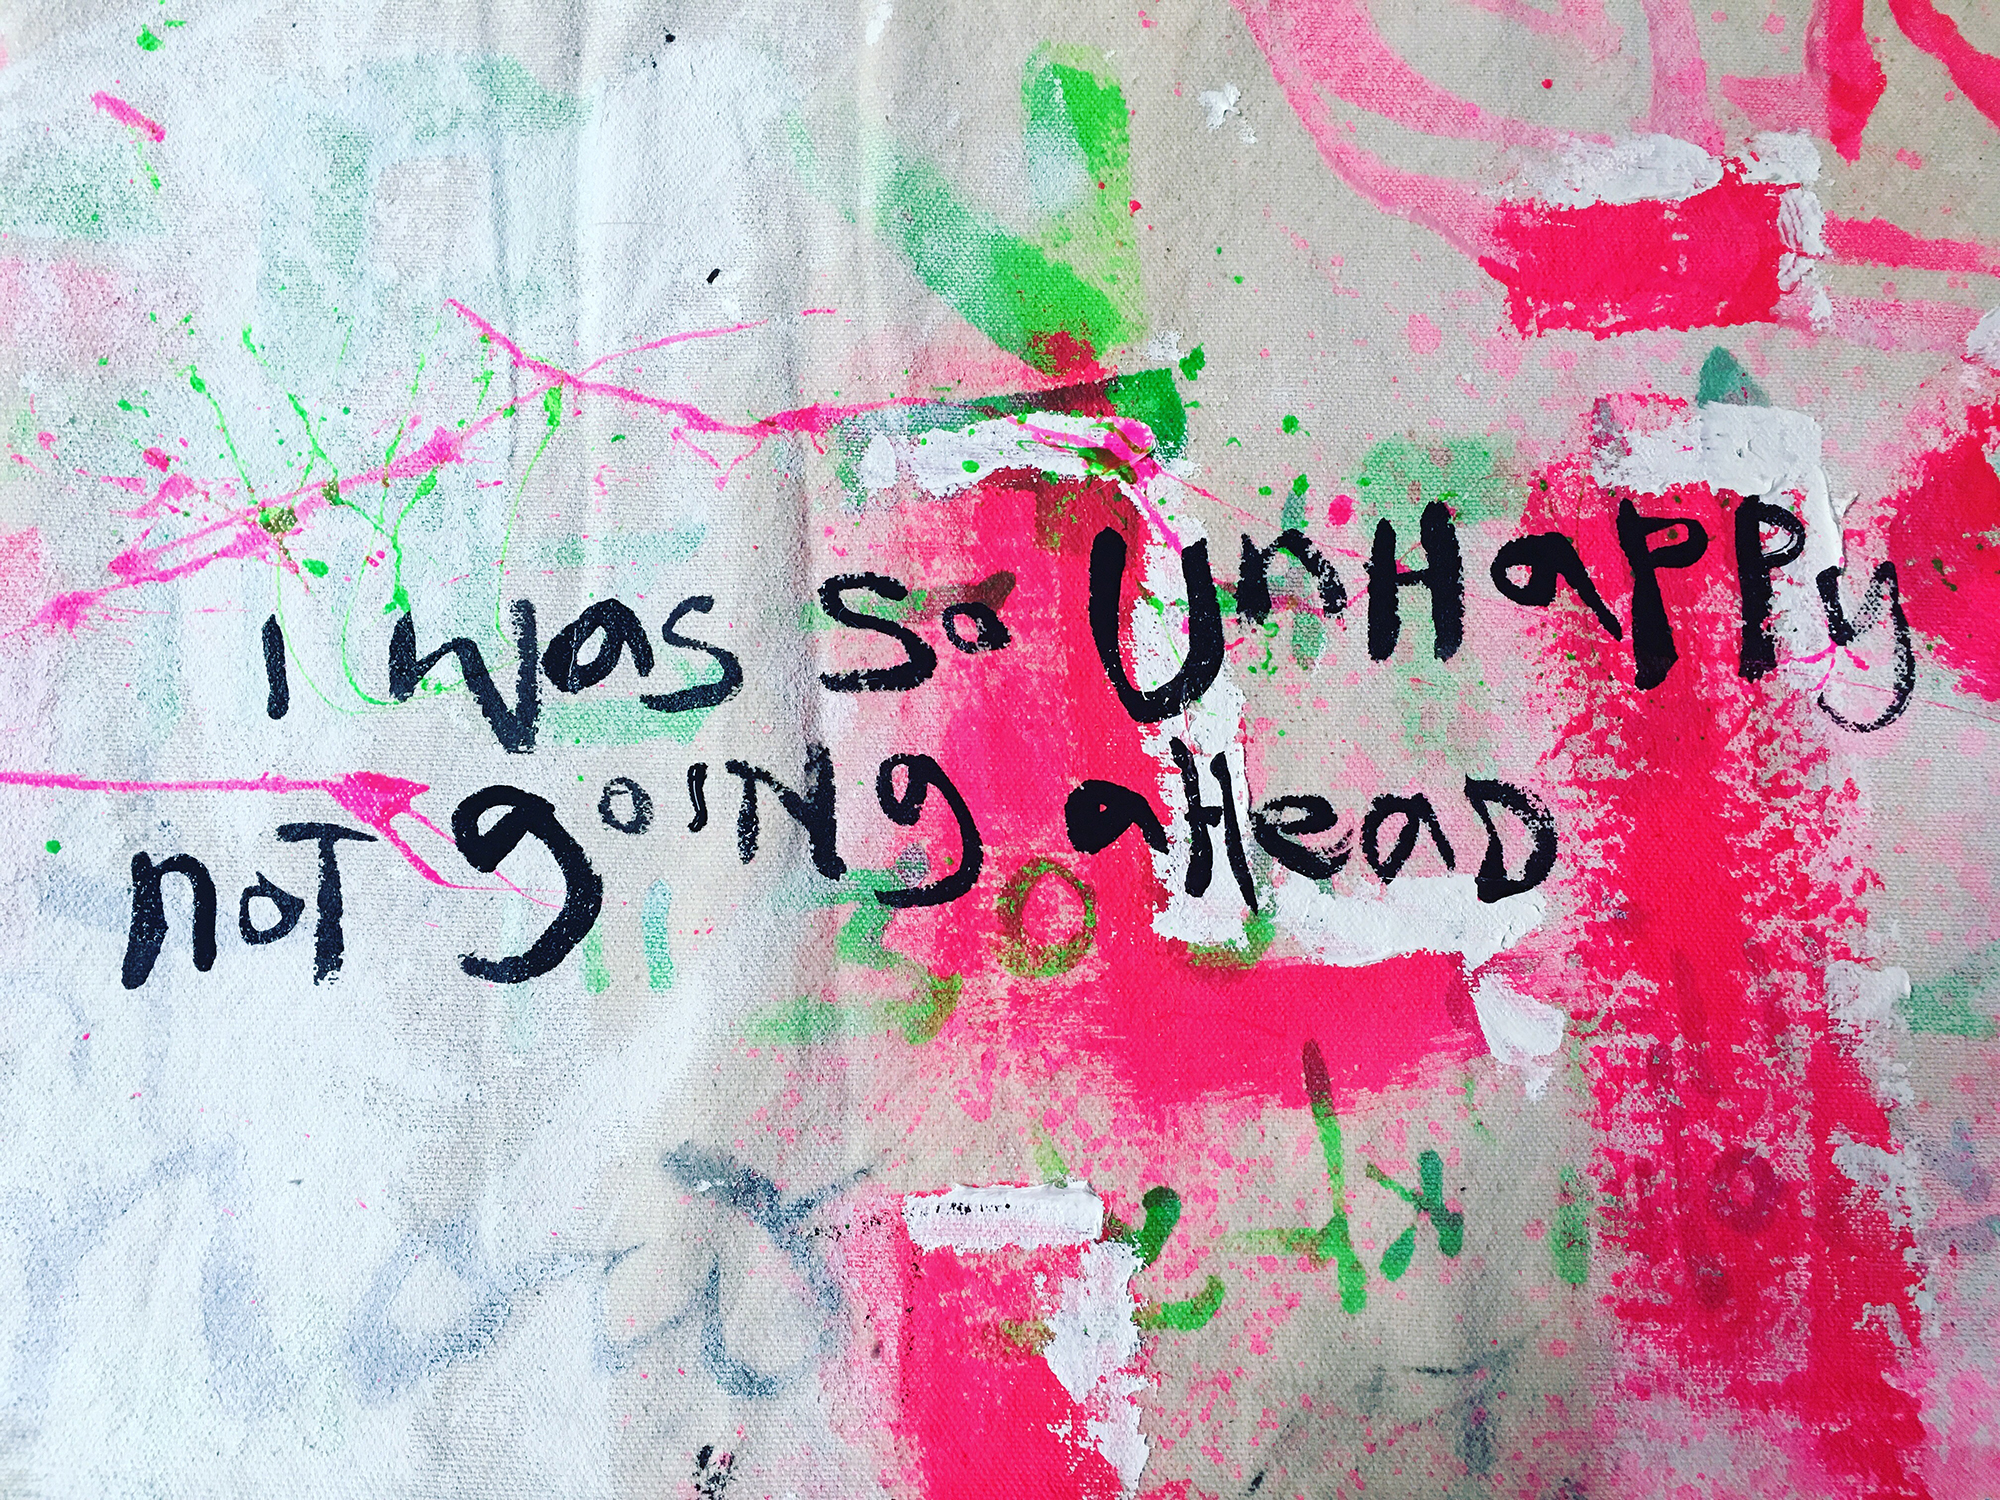 i was so UnHappy
noT goiNg aHeaD